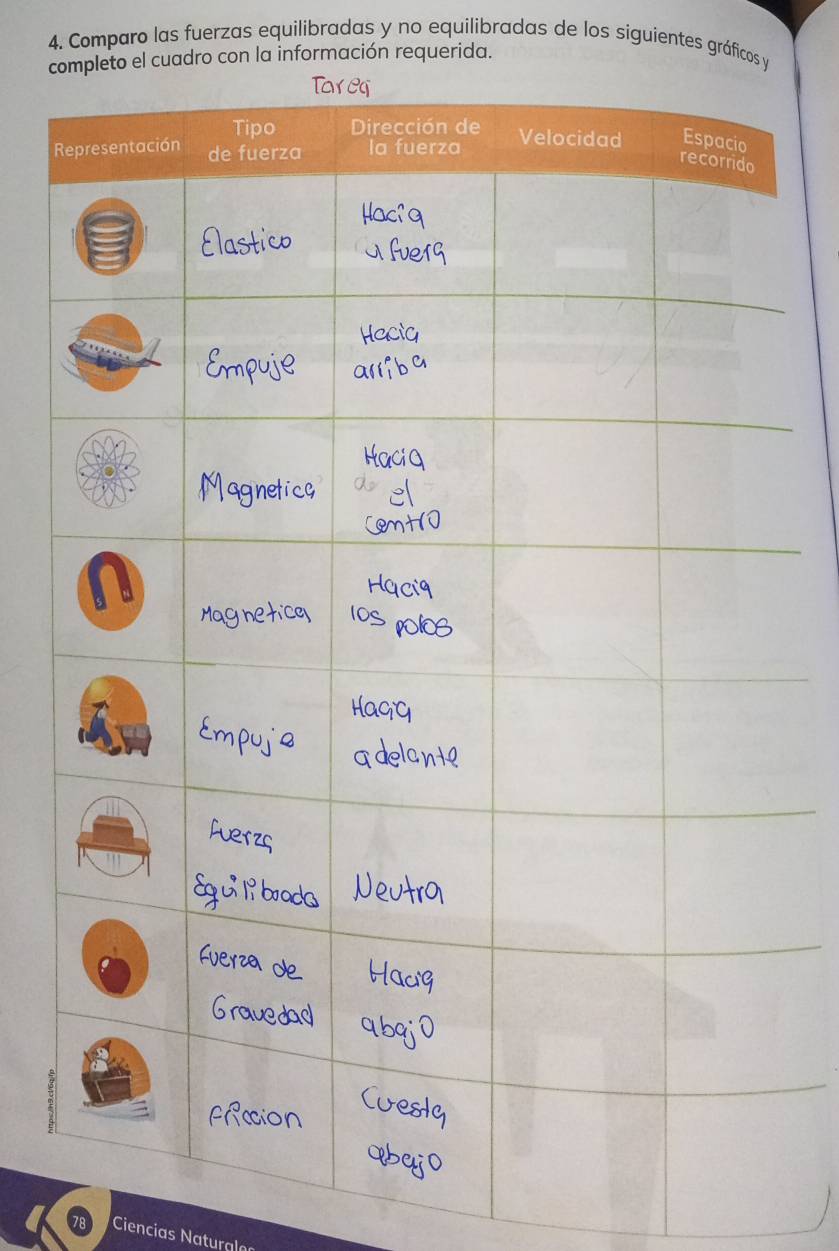 4. Comparo las fuerzas equilibradas y no equilibradas de los siguientes gráficos y
completo el cuadro con la información requerida.
Tarea
Representación
Tipo
de fuerza
Dirección de
la fuerza
Velocidad
Espacio
recorrido
Elastico
Hacia
a fuera
Empuje
Hacia
arriba
Magnetica
Hacia
el
centro
S
N
Magnetica
Hacia
los polos
Empuje
Hacia
adelante
Fuerza
Equiliboada
Neutra
Fuerza de
Gravedad
Hacia
abajo
Friccion
Cuesta
abajo
78
Ciencias Naturales